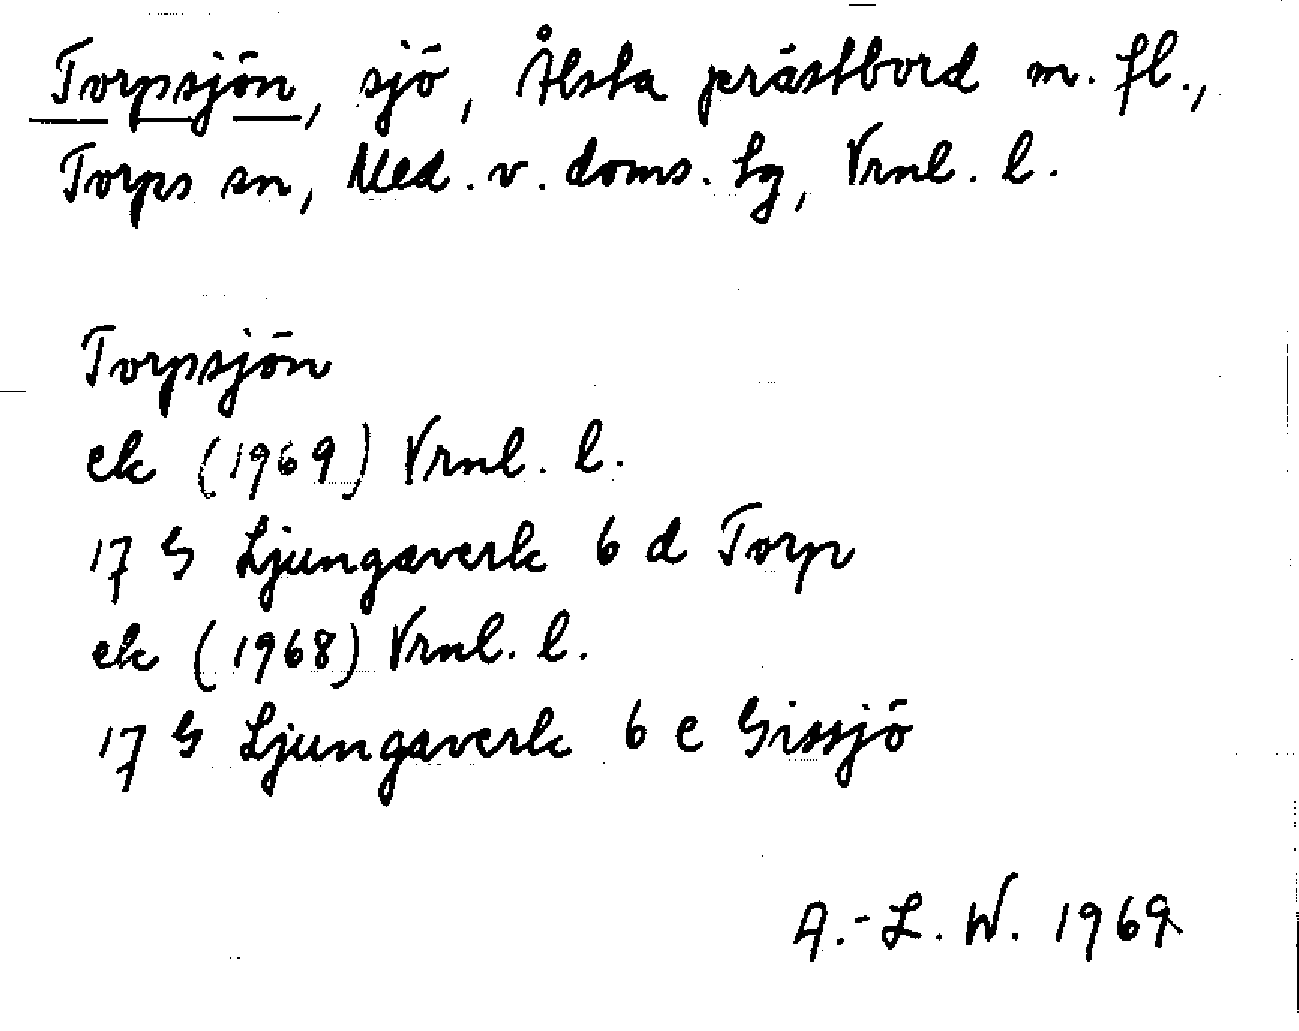 Torpsjön, sjö, Ålsta prästbord m. fl.,
Torps sn, Med. v. doms. tg, Vrnl. l.
Torpsjön
ek (1969) Vrnl. l.
17 G Ljungaverk 6 d Torp
ek (1968) Vrnl. l.
17 G Ljungaverk 6 e Gissjö
A.-L. W. 1969